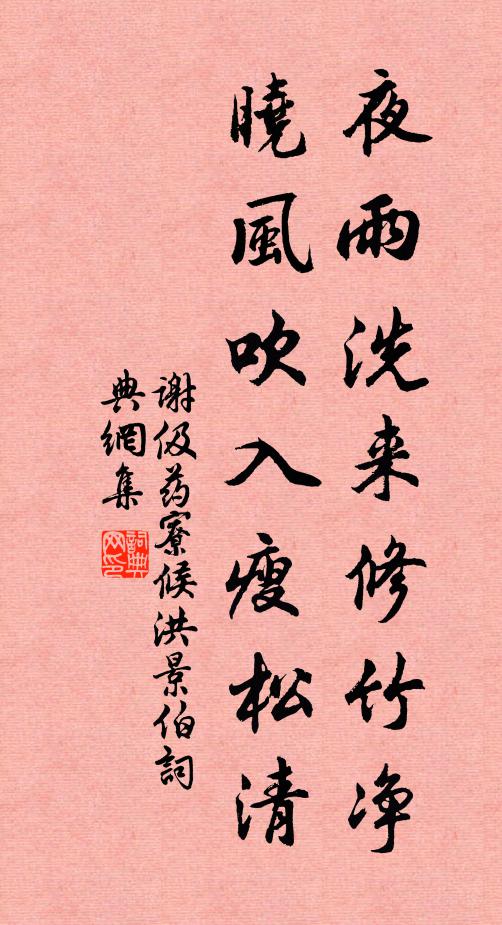 夜雨洗来修竹净
曉風吹入瘦松清
谢伋药寮候洪景伯詞
典網集
詞典
网印